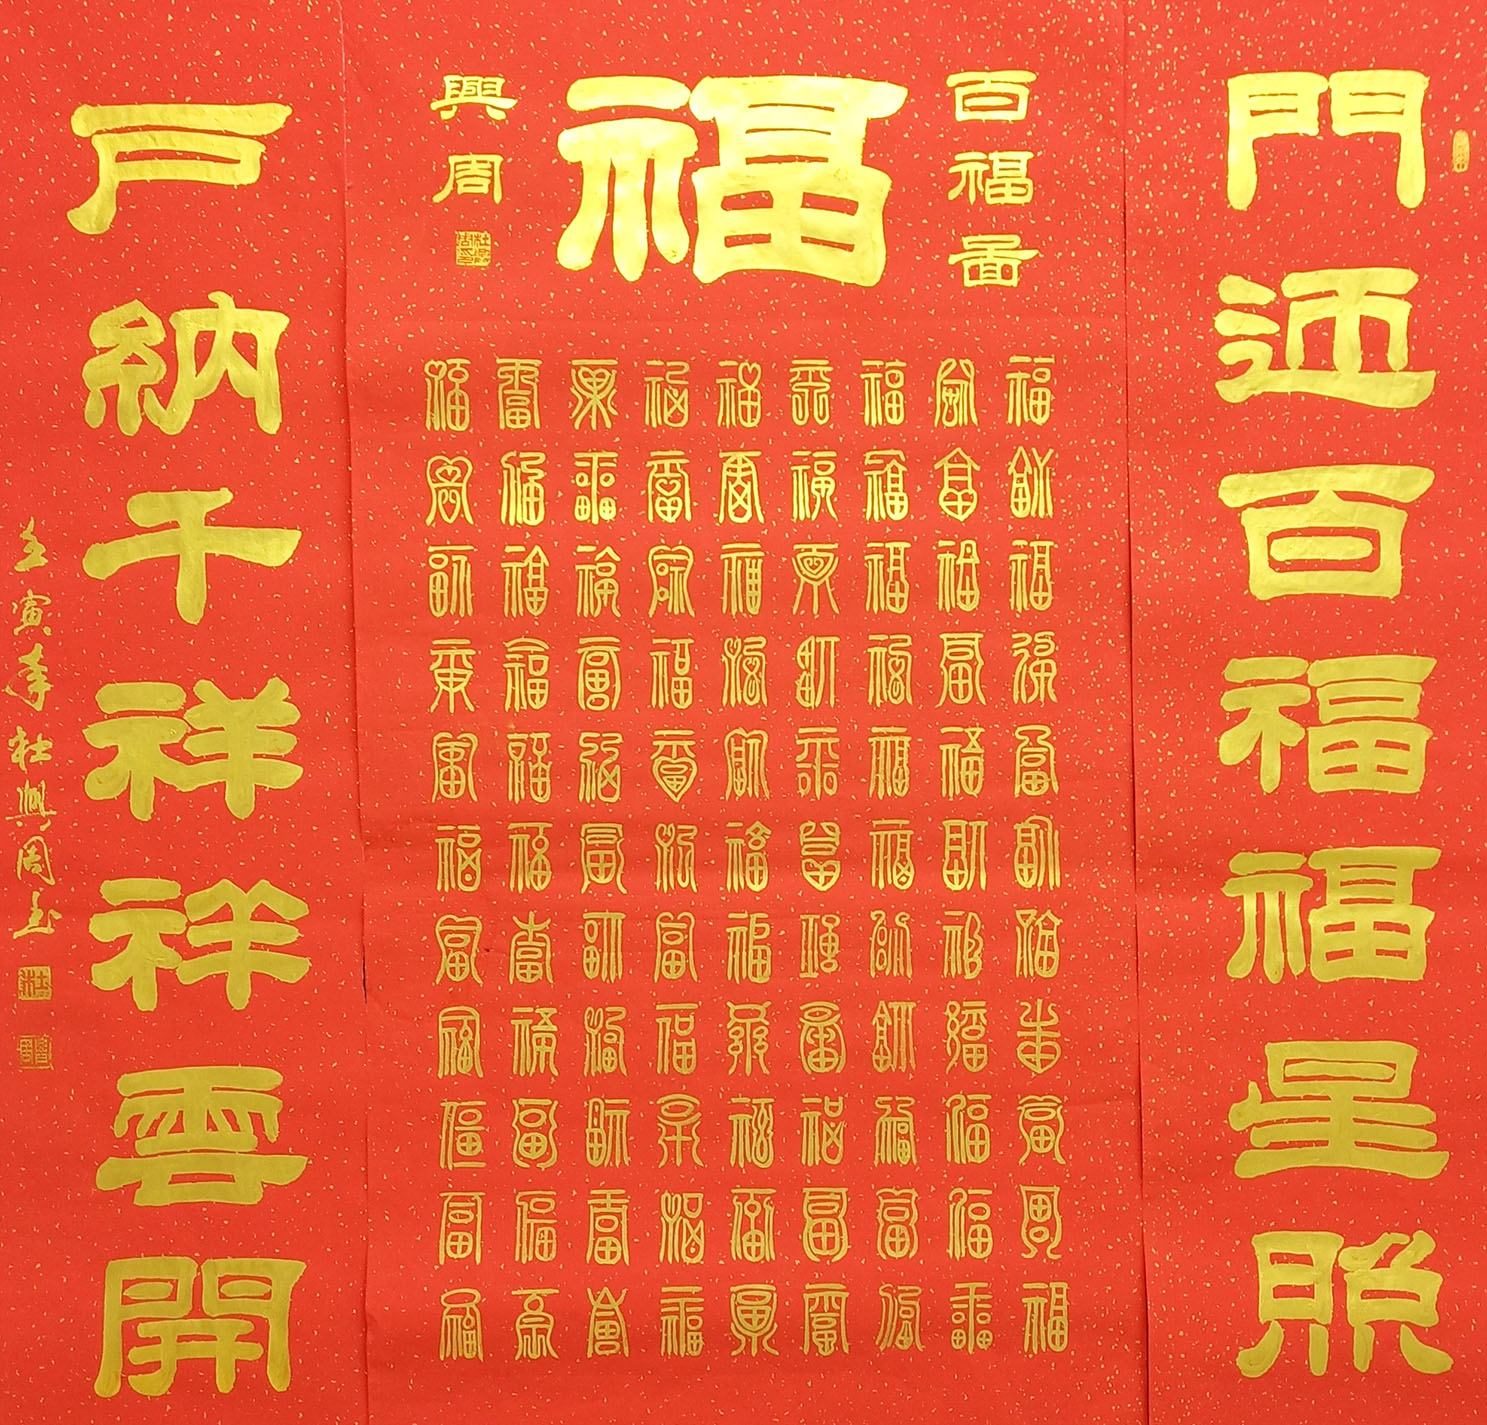 門迎百福福星照
百福圖
福
福福福福福福福福福福福
福福福福福福福福福福福
福福福福福福福福福福福
福福福福福福福福福福福
福福福福福福福福福福福
福福福福福福福福福福福
福福福福福福福福福福福
福福福福福福福福福福福
福福福福福福福福福福福
興周
戶納千祥祥雲開
壬寅年杜興周書